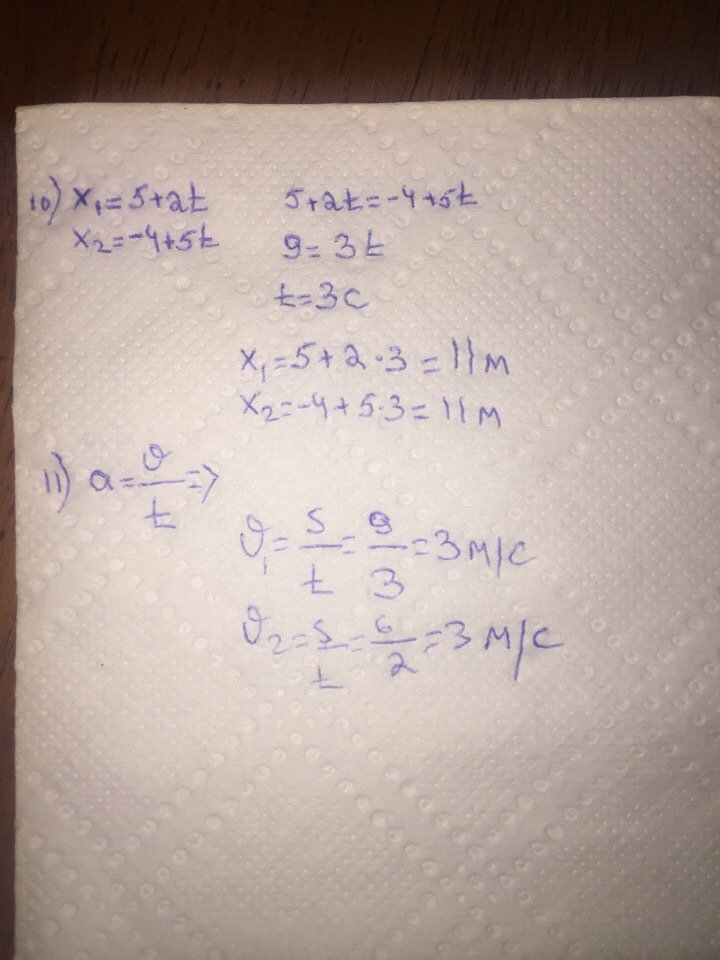 10) x₁=5+2t 5+2t=-4+5t
x₂=-4+5t 9=3t
t=3c
x₁=5+2·3=11м
x₂=-4+5·3=11м
11) a=υ/t=>
υ₁=s/t=9/3=3м/с
υ₂=s/t=6/2=3м/с